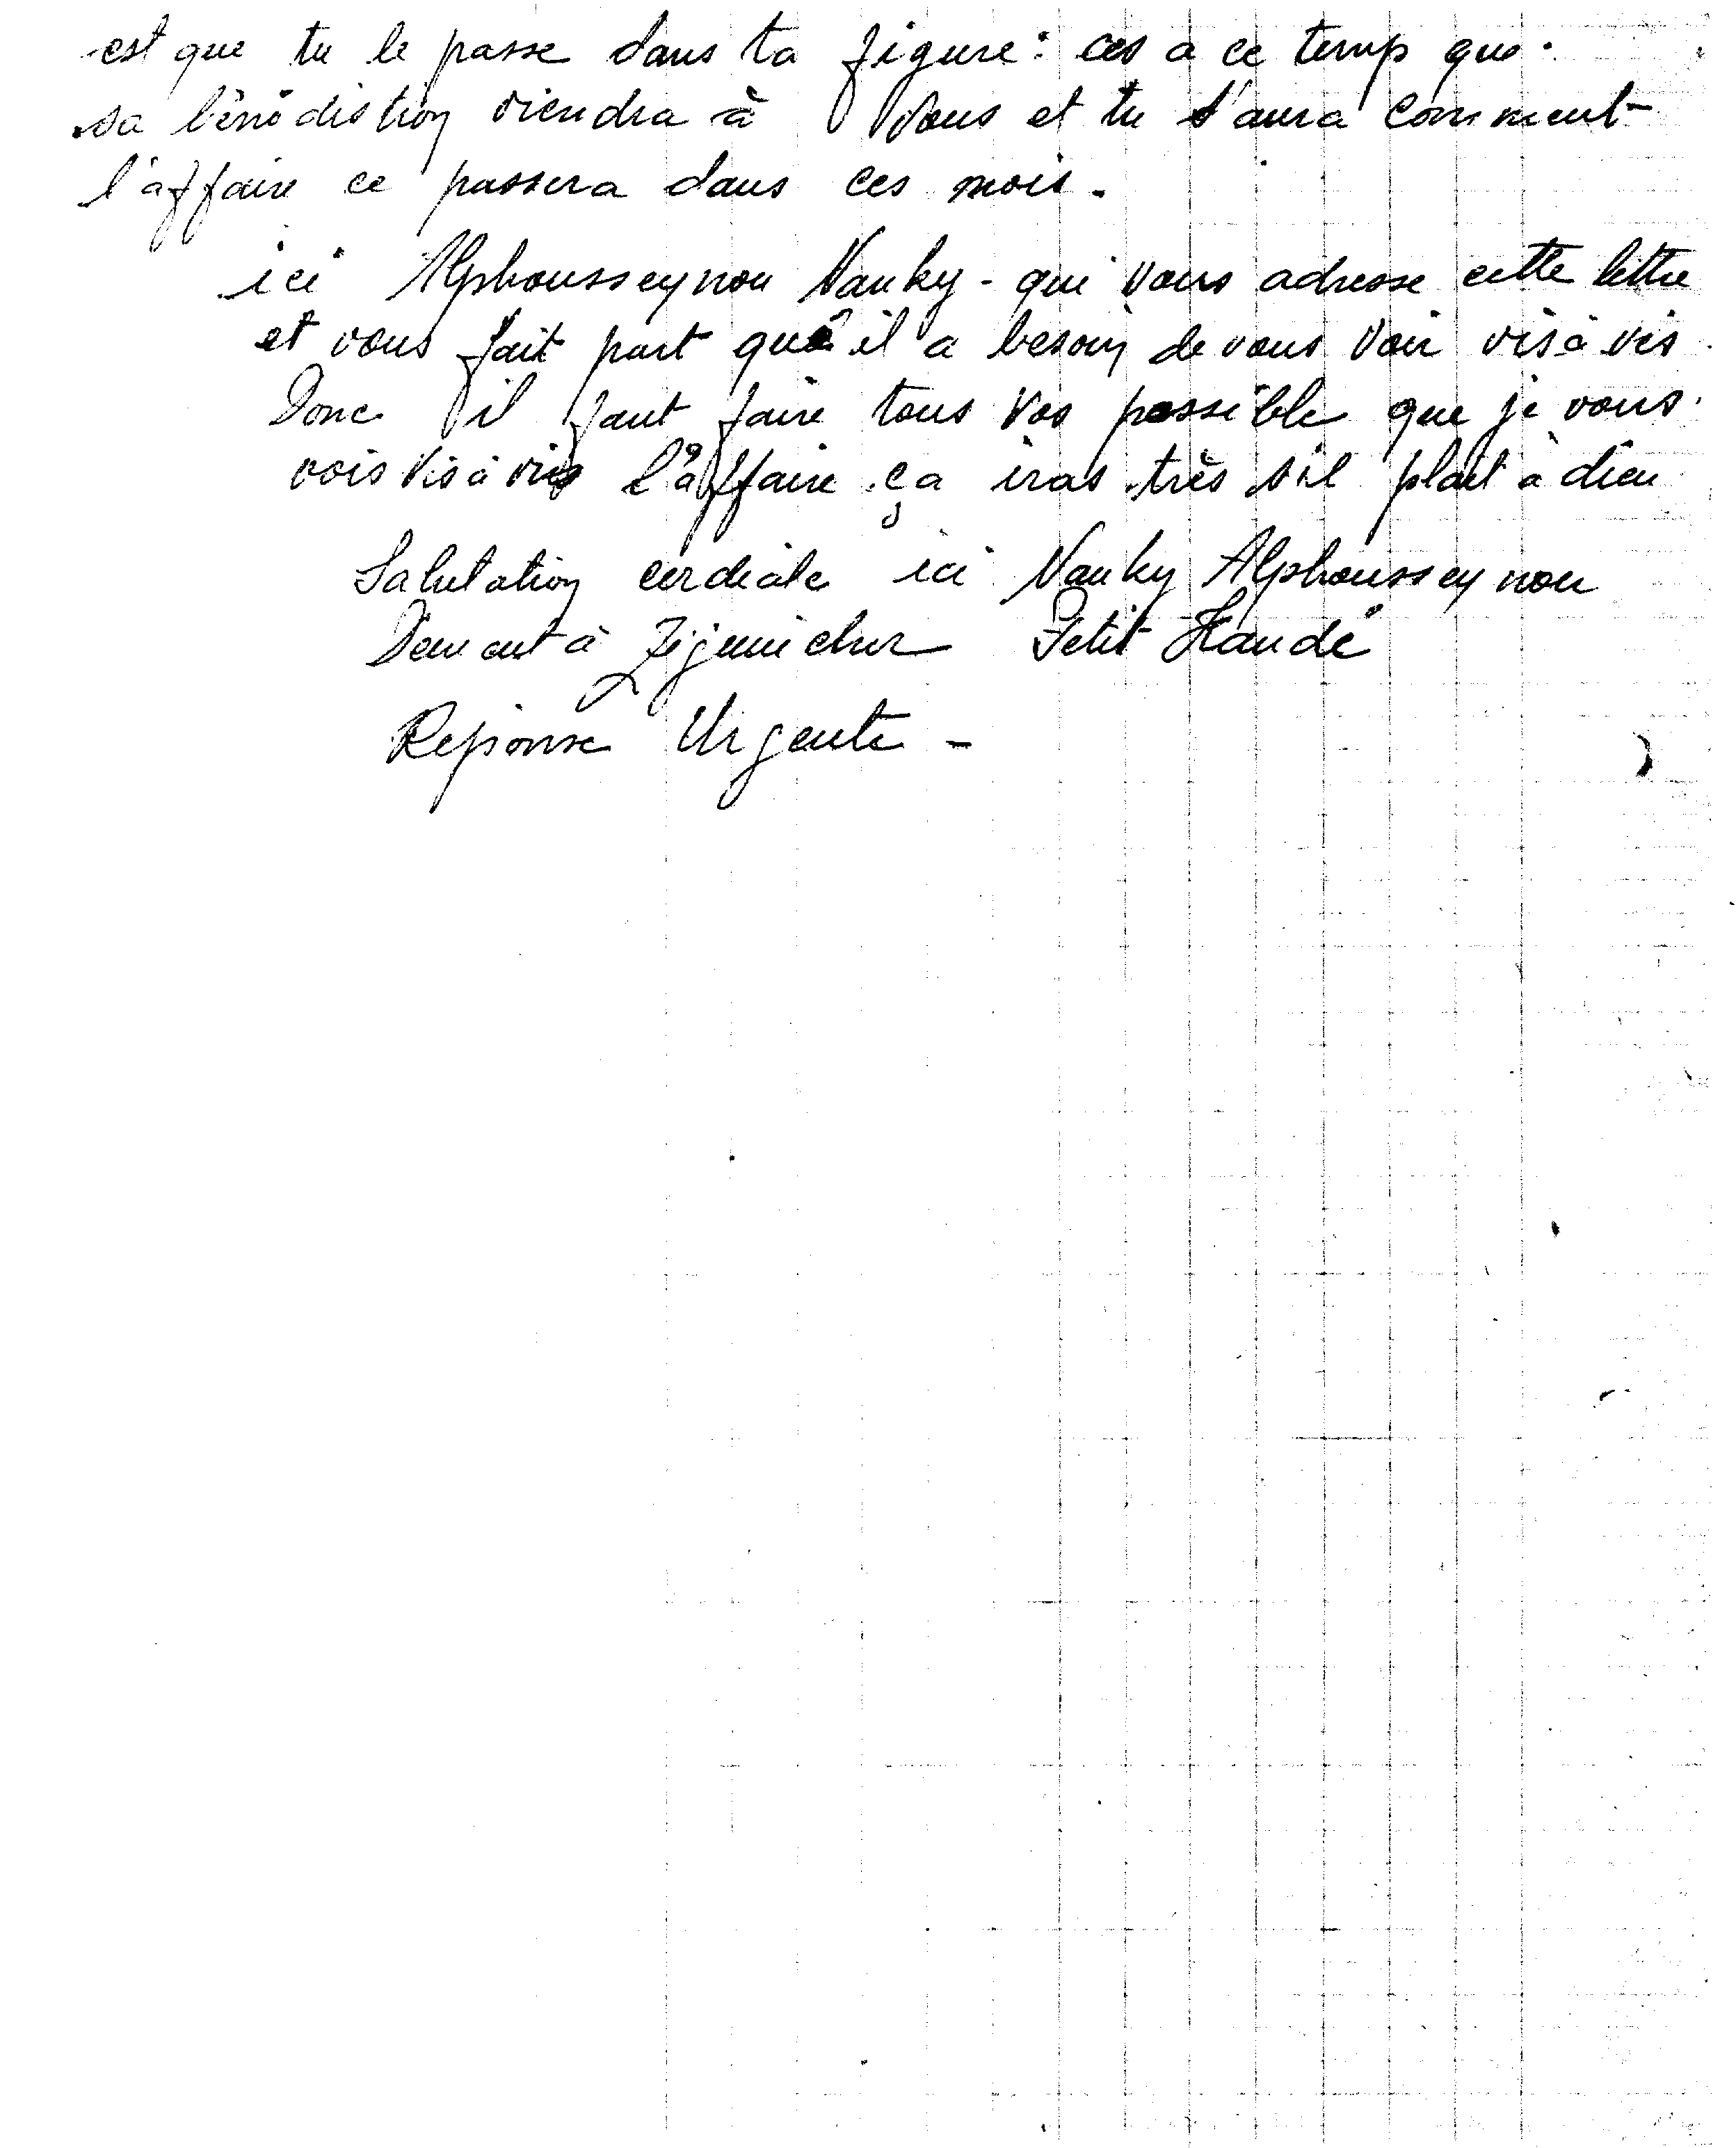 est que tu le passe dans ta figure : ces a ce temp que.
sa bénédistion viendra à Vous et tu s'aura comment
l'affaire ce passera dans ces mois.
ici Alphousseynou Nanky - qui vous adresse cette lettre
et vous fait part que il a besoin de vous voir vis à vis
Donc il faut faire tous vos possible que je vous
vois vis à vis l'affaire ça iras très s'il plait à dieu
Salutation cordiale ici Nanky Alphousseynou
à Petit Kandé
Reponse Urgente -